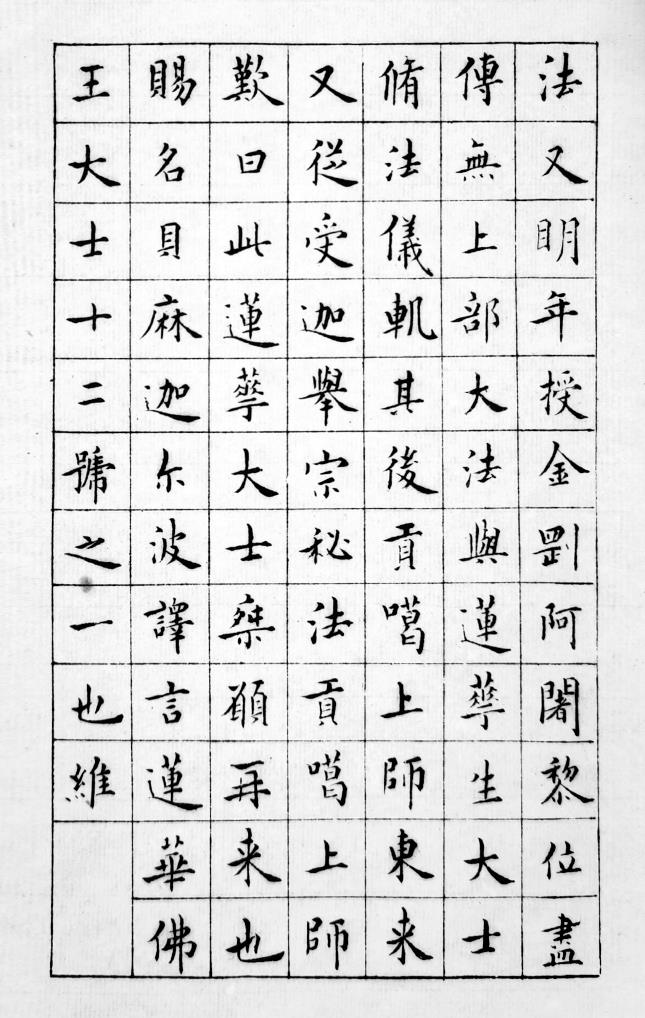 法又明年授金剛阿闍黎位盡
傳無上部大法與蓮華生大士
脩法儀軌其後貢噶上師東来
又從受迦舉宗秘法貢噶上師
歎曰此蓮華大士乗願再来也
賜名貝麻迦尔波譯言蓮華佛
王大士十二號之一也維